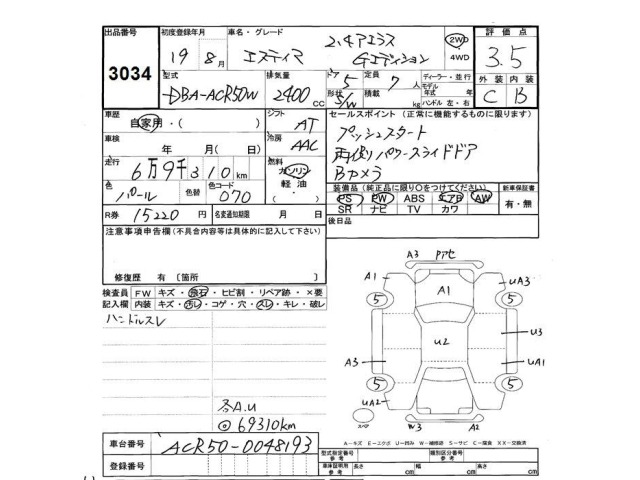 出品番号 3034
初度登録年月 19年 8月
車名・グレード エスティマ 2.4アエラス Gエディション
2WD
4WD
評価点 3.5
外装 C 内装 B
型式 DBA-ACR50W
排気量 2400 cc
ドア 5
形状 S/W
定員 7人
積載 kg
ディーラー・並行
モデル年式 年式
ハンドル 左・右
車歴 自家用・( )
シフト AT
セールスポイント (正常に機能するものに限ります)
プッシュスタート
両側パワースライドドア
Bカメラ
車検 年 月(日)
冷房 AAC
走行 6万9千310km
燃料 ガソリン
軽油・
色 パール 色替
色コード 070
装備品 (純正品に限り○をつけてください)
PS PW ABS エアB AW
SR ナビ TV カワ
新車保証書 有・無
R券 15220円
名変通知期限 月 日
後日品
注意事項申告欄(不具合内容等は具体的に記入して下さい)
修復歴 有 〔箇所 〕
検査員記入欄
FW キズ・飛石・ヒビ割・リペア跡・×要
内装 キズ・汚レ・コゲ・穴・スレ・キレ・破レ
ハンドルスレ
各A.U
◎69310km
A3 Fアセ
A1 A1 UA3
5 5
U3
U2
A3 UA1
5 5
UA2
スペア W3 A2
A-キズ E-エクボ U-凹み W-補修跡 S-サビ C-腐食 XX-交換済
車台番号 ACR50-0048193
登録番号
型式指定番号 参考
類別区分番号 参考
車庫証明用 参考 長さ cm 幅 cm 高さ cm